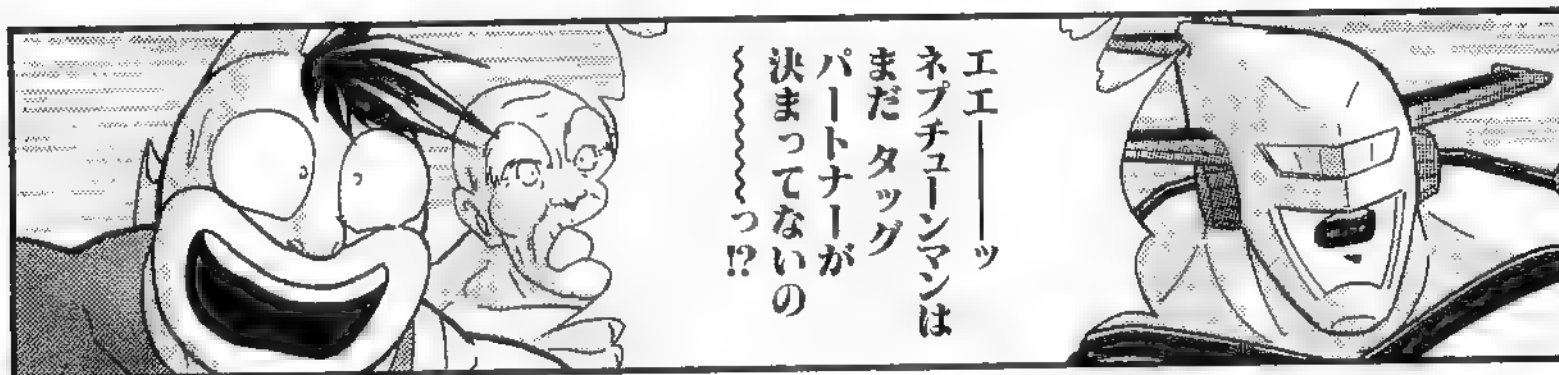 エエ───ッ
ネプチューンマンは
まだ タッグ
パートナーが
決まってないの
〜〜〜〜〜っ!?